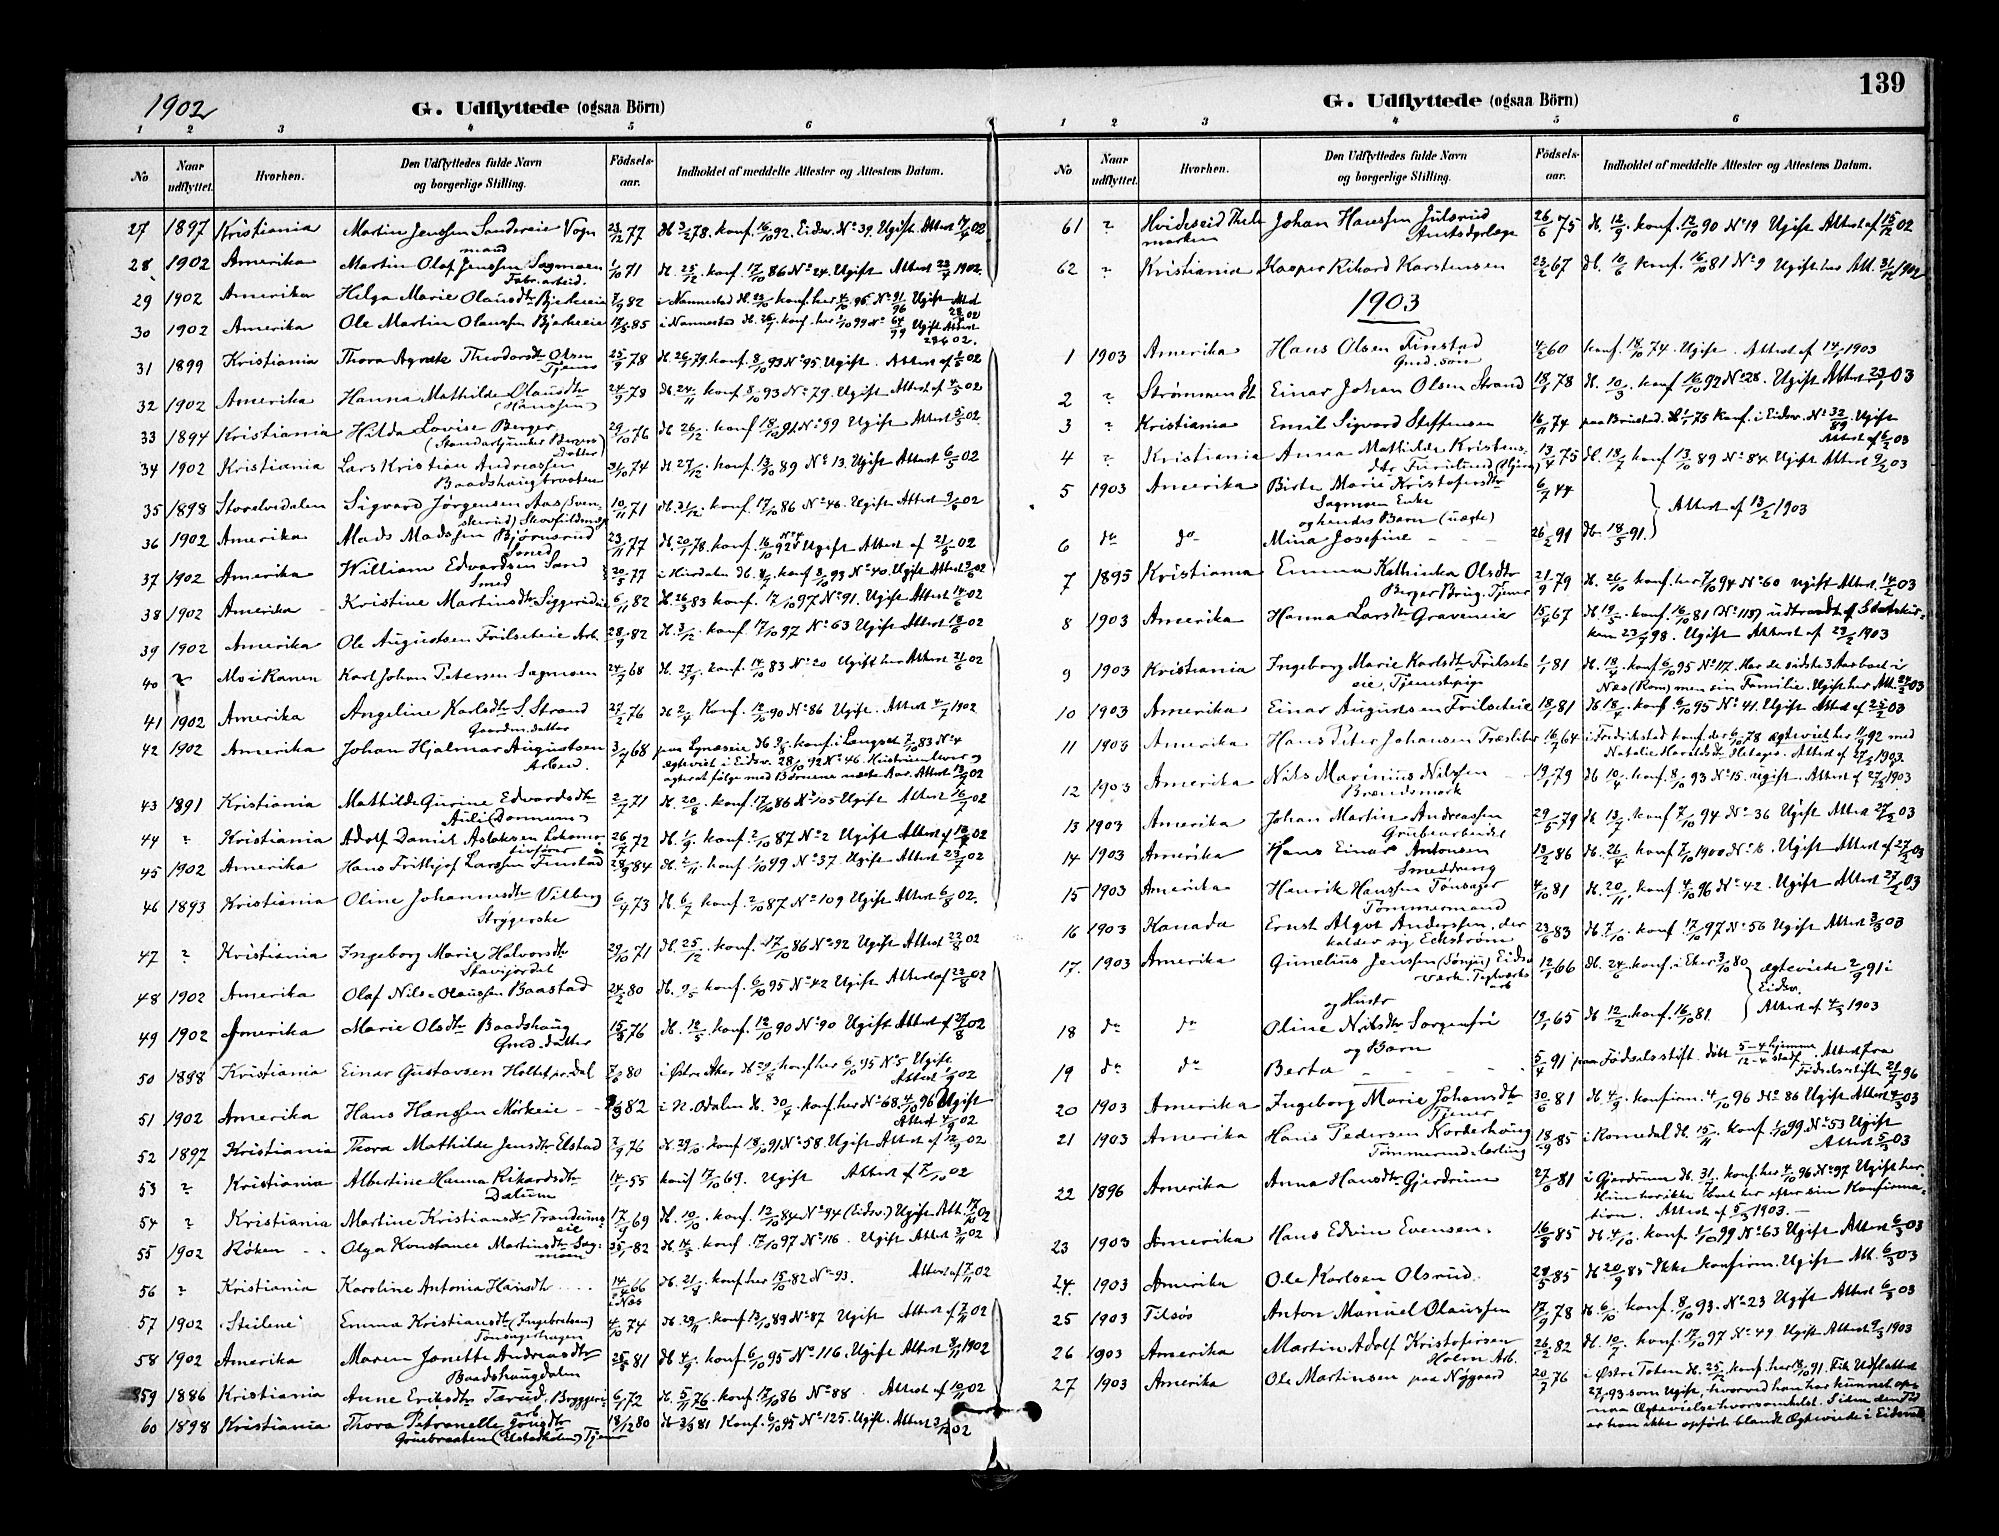 139
1902
G. Udflyttede (ogsaa Börn)
1 2 3 4 5 6
No
Naar udflyttet.
Hvorhen.
Den Udflyttedes fulde Navn og borgerlige Stilling.
Födsels-aar.
Indholdet af meddelte Attester og Attestens Datum.
27 1897 Kristiania Martin Jenssen 23/12 77 konf. 16/10 92. Eidsv. No 39. Ugift. Attest 17/4 02
28 1902 Amerika Martin Olaf Jenssen Sagmoen 1/10 71 d. 25/12. konf. 17/10 86 No 24. Ugift Attest 1902
Fabr. arbeid.
29 1902 Amerika Helga Marie Olausdtr Bjerkeeie 7/9 82 i Nannestad
30 1902 Amerika Ole Martin Olaussen Bjerkeeie 17/5 85 i Nannestad
31 1899 Kristiania Thora Agnete Theodorsdtr Olsen 25/9 78 d. 26/1 79. konf. 8/10 93 No 95. Ugift. Attest af 02
Tjener
32 1902 Amerika Hanna Mathilde Olausdtr 24/9 78 d. 24/11 konf. 8/10 93 No 79. Ugift Attest af 02
(Hanssen)
33 1894 Kristiania Hilda Lovise Berger 29/10 76 d. 26/12. konf. 18/10 91. No 99 Ugift Attest 02.
34 1902 Kristiania Lars Kristian Andreassen 74 d. 27/12. konf. 13/10 89 No 13. Ugift Attest 6/5 02
Baadshaugbraaten
35 1898 Storelvedalen Sigvard Jørgensen Aas 10/11 71 konf. 17/10 86 No 46. Ugift Attest 02
36 1902 Amerika Mads Madssen Bjørnsrud 23/11 77 konf. 16/10 92 Ugift Attest af 21/5 02
Smed
37 1902 Amerika William Edvardsen Sand 20/5 77 konf. 8/10 93 No 40. Ugift Attest 02
Smed
38 1902 Amerika Kristine Martinsdtr 6/11 82 d. 26/3 83 konf. 17/10 97 No 91. Ugift Attest 14/6 02
39 1902 Amerika Ole Augustsen Frilseteie Arb. 28/9 82 d. 3/12. konf. 17/10 97 No 63 Ugift Attest 18/6 02
40 ? Mo i Ranen Karl Johan Petersen Sagmoen 24/7 68 konf. 14/10 83 No 20 Ugift her Attest 21/6 02
41 1902 Amerika Angeline Karlsdtr S. Strand 27/2 76 d. 2/4 Konf. 12/10 90 No 86 Ugift. Attest 4/7 1902
Gaardm. datter
42 1902 Amerika Johan Hjalmar Augustsen 3/7 68 konf. i Langset 7/10 83 No 4
Arbeid. ægteviet i Eidsv. 28/10 92 No 46.
43 1891 Kristiania Mathilde Gurine Edvardsdtr 2/7 71 d. 20/8. konf. 17/10 86 No 105 Ugift Attest 16/7 02
44 ? Kristiania Adolf Daniel Aslaksen Lokomo- 26/7 72 konf. 2/10 87 No 2 Ugift Attest af 02
tivfører
45 1902 Amerika Hans Frithjof Larssen Finstad 84 konf. 1/10 99 No 37. Ugift Attest 23/7 02
46 1893 Kristiania Oline Johannesdtr Vilberg 73 konf. 2/10 87 No 109 Ugift Attest 6/8 02.
Strygerske
47 ? Kristiania Ingeborg Marie Halvorsdtr 29/10 71 d. 25/12. konf. 17/10 86 No 92 Ugift Attest 22/8 02
Stavijordet
48 1902 Amerika Olaf Nils Olaussen Baastad 24/2 80 konf. 6/10 95 No 42 Ugift Attest af 22/8 02
49 1902 Amerika Marie Olsdtr Baadshaug 76 d. 12/5. konf. 12/10 90 No 90 Ugift Attest af 27/8 02
Gmd. datter
50 1898 Kristiania Einar Gustavsen Holtet pr. Dal 80 i Østre Aker konf. her 6/10 95 No 5 Ugift.
Attest 02
51 1902 Amerika Hans Hanssen Mørkeie 82 i N. Odalen d. 30/4. konf. her No 68. 4/10 96 Ugift
Attest 4/9 02
52 1897 Kristiania Thora Mathilde Jensdtr Elstad 76 konf. 18/10 91 No 58. Ugift Attest af 12/9 02
53 ? Kristiania Albertine Hanna Rikardsdtr 14/1 55 konf 17/10 69. Ugift Attest af 7/10 02
Dalum
54 ? Kristiania Martine Kristiansdtr Trandums- 17/9 69 d. 10/10. konf. 12/10 84 No 94 (Eidsv.) Ugift Att. 17/10 02
eie
55 1902 Røken Olga Konstance Martinsdtr Sag- 25/1 82 d. 14/5. konf. 17/10 97 No 116. Ugift Attest 3/11 02
moen
56 ? Kristiania Karoline Antonia Hansdtr 14/4 66 konf. her 15/10 82 No 93. Attest af 7/11 02
i Næs
57 1902 Steilene Emma Kristiansdtr (Ingebretsen) 4/10 74 d. 29/11. konf 13/10 89 No 87 Ugift Attest af 7/11 02
Tønsagerhagen
58 1902 Amerika Maren Jonette Andreasdtr 81 d. 4/9. konf. 6/10 95 No 116. Ugift Attest 8/11 1902
Baadshaugdalen
59 1886 Kristiania Anne Eriksdtr Tærud, Bryggeri- 6/1 72 konf. 17/10 86 No 88. Attest af 10/11 02
arb.
60 1898 Kristiania Thora Petronelle 18/12 80 konf. 6/10 95 No 125. Ugift. Attest 02
Tjener
G. Udflyttede (ogsaa Börn)
1 2 3 4 5 6
No
Naar udflyttet.
Hvorhen.
Den Udflyttedes fulde Navn og borgerlige Stilling.
Födsels-aar.
Indholdet af meddelte Attester og Attestens Datum.
61 ? Hvideseid Thele- Johan Hanssen Julsrud 26/6 75 d. 12/9. konf. 12/10 90 No 19 Ugift Attest af 15/12 02
marken Amtsdyrlæge
62 ? Kristiania Kasper Rikard Karstensen 23/2 67 d. 10/6 konf. 16/10 81 No 9 Ugift her Att. 31/12 1902
1903
1 1903 Amerika Hans Olsen Finstad 4/2 60 konf. 18/10 74. Ugift. Attest af 14/1 1903
Gmd. søn
2 ? Strømmen St. Einar Johan Olsen Strand 18/1 78 d. 10/3. konf. 16/10 92 No 28. Ugift Attest 23/1 03
3 ? Kristiania Emil Sigvard Steffensen 16/11 74 konf. i Eidsv. No 32/89. Ugift
Attest af 6/2 03
4 ? Kristiania Anna Mathilde Kristens- 13/4 75 d. 18/7 konf. 13/10 89 No 84 Ugift Attest 9/2 03
5 1903 Amerika Birte Marie Kristofersdtr 6/7 44
Sagmoen Enke
og hendes Barn (uægte)
Attest af 13/2 1903
6 do do Mina Josefine 26/2 91 d. 18/5 91.
7 1895 Kristiania Emma Kathinka Olsdtr 21/9 79 d. 26/10 konf. her 7/10 94 No 60 ugift Attest 14/2 03
Berger Brug. Tjener
8 1903 Amerika Hanna Larsdtr Graveneie 15/4 67 d. 19/5. konf. 16/10 81 (No 118) udtraadt af Statskir-
ken 23/7 98. Ugift Attest af 23/2 1903
9 1903 Kristiania Ingeborg Marie Karlsdtr Frilset- 1/1 81 d. 18/4. konf 6/10 95 No 17. Har de sidste 3 Aar boet i
eie, Tjenestepige Næs (Rom) men sin Familie. Ugift her Att. 24/2 03
10 1903 Amerika Einar Augustsen Frilseteie 18/1 81 d. 18/4. konf. 6/10 95 No 41. Ugift Attest af 25/2 03
11 1903 Amerika Hans Peter Johansen Træsliter 16/7 64 i Fredrikstad konf. der 6/10 78 ægteviet her 11/9 92 med
Natalie Haraldsdtr Attest af 27/2 1903
12 1903 Amerika Nils Marinius Nilssen 19/1 79 d. 10/4. konf. 8/10 93 No 15. ugift. Attest af 27/2 1903
Brændsmork
13 1903 Amerika Johan Martin Andreassen 29/5 79 d. 13/7. konf 7/10 94 No 36 Ugift Attest 27/2 03
Grubearbeider
14 1903 Amerika Hans Einar Antonsen 13/2 86 d. 26/4 konf 7/10 1900 No 16. Ugift Attest af 27/2 03
Smeddreng
15 1903 Amerika Henrik Hanssen Tønsager 4/10 81 d. 20/11. konf. 4/10 96 No 42. Ugift Attest 27/2 03
Tømmermand
16 1903 Kanada Ernst Algot Anderssen, der 23/6 83 d. 7/10. konf. 17/10 97 No 56 Ugift Attest 3/3 03
kalder sig Eckstrøm
17. 1903 Amerika Gunelius Jenssen Eidsv. 12/1 66 d. 24/6 konf. i Eker 3/10 80
Værk. Teglværks
arb
ægteviede 2/9 91 i
Eidsv.
Attest af 4/3 1903
og Hustr
18 do do Oline Nilsdtr Sorgenfri 19/1 65 d. 12/2. konf. 16/10 81.
og Barn
19 do do Berta 5/4 91 paa Fødselsstift. døbt 5-4 hjemme 12-4 stadf. Attest fra
Fødselsstift. 21/7 96
20 1903 Amerika Ingeborg Marie Johansdtr 30/6 81 d. 4/9. konfirm. 4/10 96 No 86 Ugift Attest 4/3 03
Tjener
21 1903 Amerika Hans Pedersen Korterhaug 18/9 85 i Romedal d. 15/11. konf. 1/10 99 No 53 Ugift
Tømmermd. lærling Attest 5/3 03
22 1896 Amerika Anna Hansdtr Gjerdrum 27/6 81 i Gjerdrum d. 31/7. konf. her 4/10 96 No 97 Ugift her.
Hun har ikke boet her efter sin Konfirma-
tion. Attest af 5/3 1903.
23 1903 Amerika Hans Edvin Evensen. 16/8 85 d. 4/10. konf. 1/10 99 No 63 Ugift Attest 6/3 03
24. 1903 Amerika Ole Karlsen Olsrud. 28/5 85 d. 20/9 85 Ikke konfirm. Ugift Att. 6/3 03
25 1903 Tilsøs Anton Manuel Olaussen 17/9 78 d. 6/10. konf. 8/10 93. No 23 Ugift Attest 6/3 03
26 1903 Amerika Martin Adolf Kristofersen 26/2 82 d. 10/7. konf. 17/10 97 No 49 Ugift Attest 9/3 1903
Holm Arb.
27 1903 Amerika Ole Martinsen paa Nygaard 20/7 76 i Østre Toten d. 25/12. konf. her 18/10 91. Fik Udflattest
27/1 93 som Ugift, hvorved han har kunnet op-
naa Ægtevielse hvorsomhelst. Siden den Tid
er han ikke opført blandt Ægteviede i Eidsvold